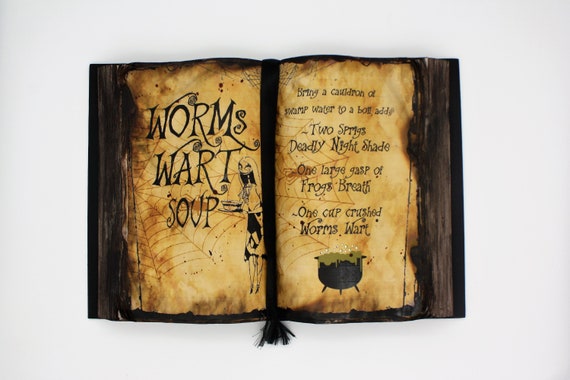 WORMS
WART
SOUP
Bring a cauldron of
swamp water to a boil adds
~Two Sprigs
Deadly Night Shade
~One large gasp of
Frogs Breath
~One cup crushed
Worms Wart